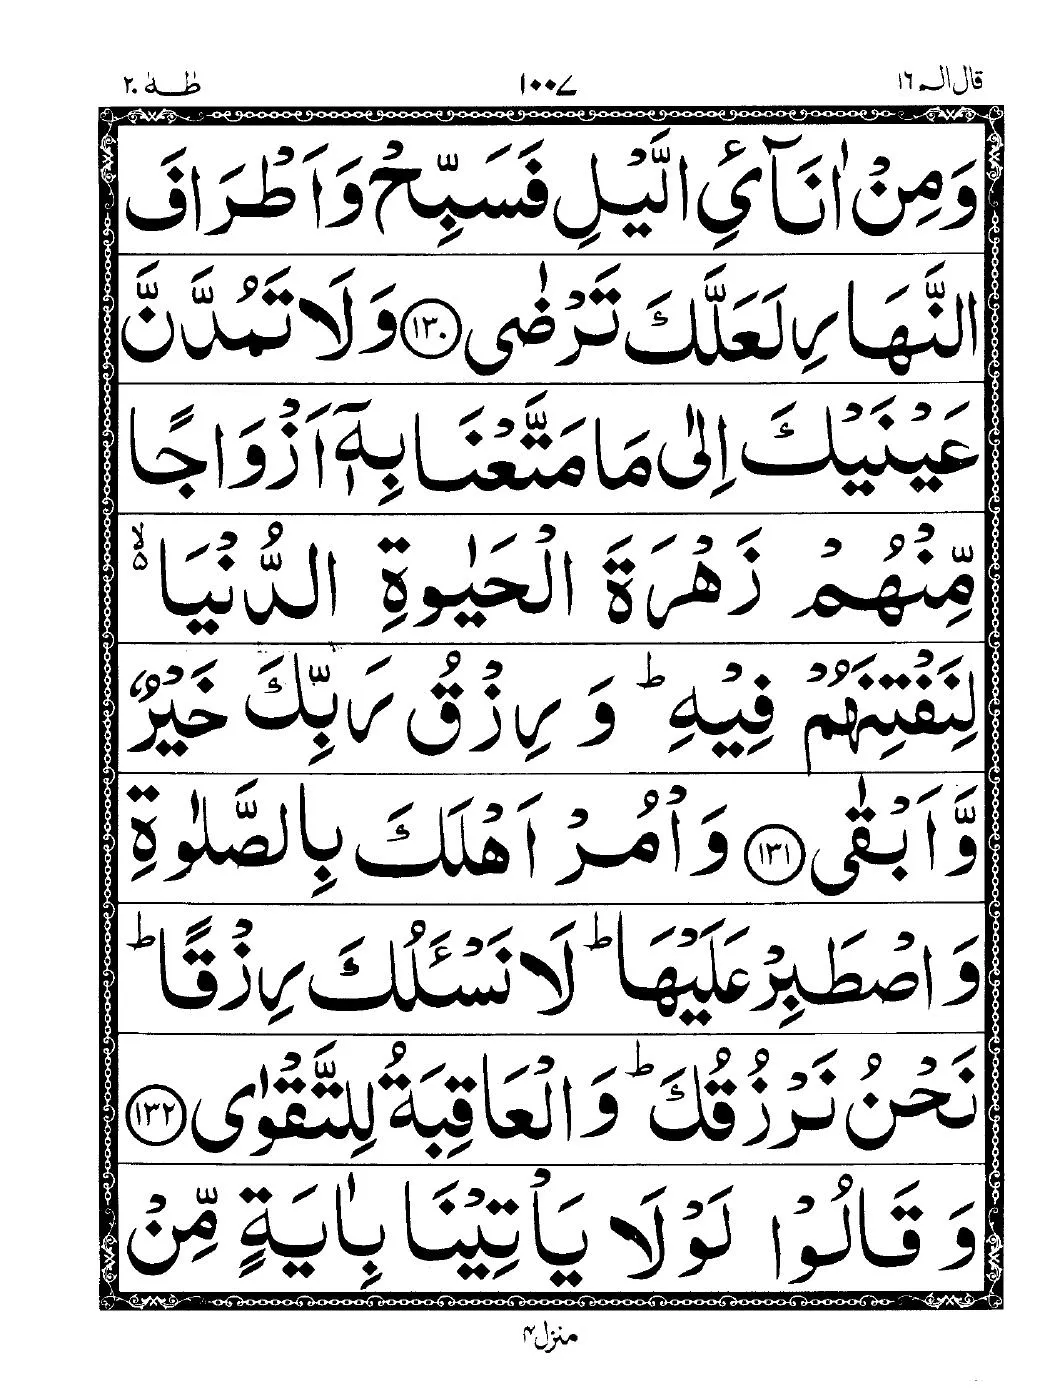 قال الم ١٦ ١٠٠٧ طٰهٰ ٢٠
وَمِنْ اٰنَآئِ الَّيْلِ فَسَبِّحْ وَاَطْرَافَ
النَّهَارِ لَعَلَّكَ تَرْضٰى ١٣٠ وَلَا تَمُدَّنَّ
عَيْنَيْكَ اِلٰى مَا مَتَّعْنَا بِهٖٓ اَزْوَاجًا
مِّنْهُمْ زَهْرَةَ الْحَيٰوةِ الدُّنْيَا ۙ۵
لِنَفْتِنَهُمْ فِيْهِ ؕ وَرِزْقُ رَبِّكَ خَيْرٌ
وَّاَبْقٰى ١٣١ وَاْمُرْ اَهْلَكَ بِالصَّلٰوةِ
وَاصْطَبِرْ عَلَيْهَا ؕ لَا نَسْـَٔلُكَ رِزْقًا ؕ
نَحْنُ نَرْزُقُكَ ؕ وَالْعَاقِبَةُ لِلتَّقْوٰى ١٣٢
وَقَالُوْا لَوْلَا يَاْتِيْنَا بِاٰيَةٍ مِّنْ
منزل ۴